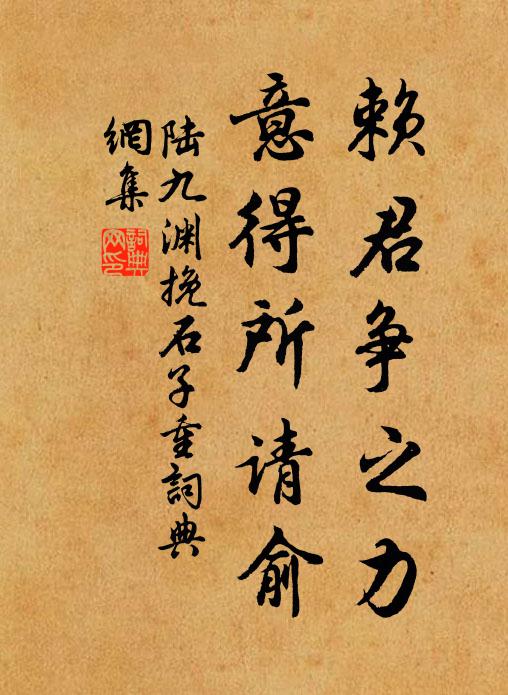 赖君争之力
意得所请俞
陆九渊挽石子重詞典
網集
詞典
网印